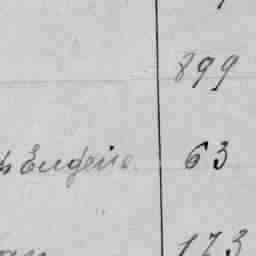 899
Eugene 63
173